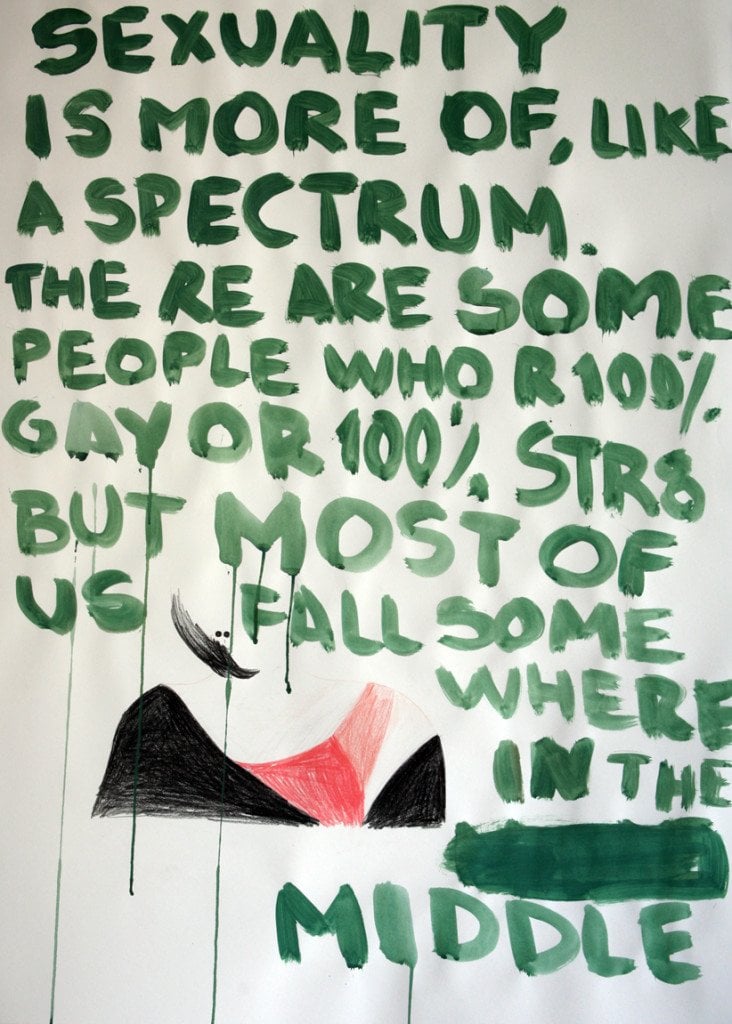 SEXUALITY
IS MORE OF, LIKE
A SPECTRUM.
THE RE ARE SOME
PEOPLE WHO R 100%
GAY OR 100% STR8
BUT MOST OF
US FALL SOME
WHERE
IN THE
MIDDLE